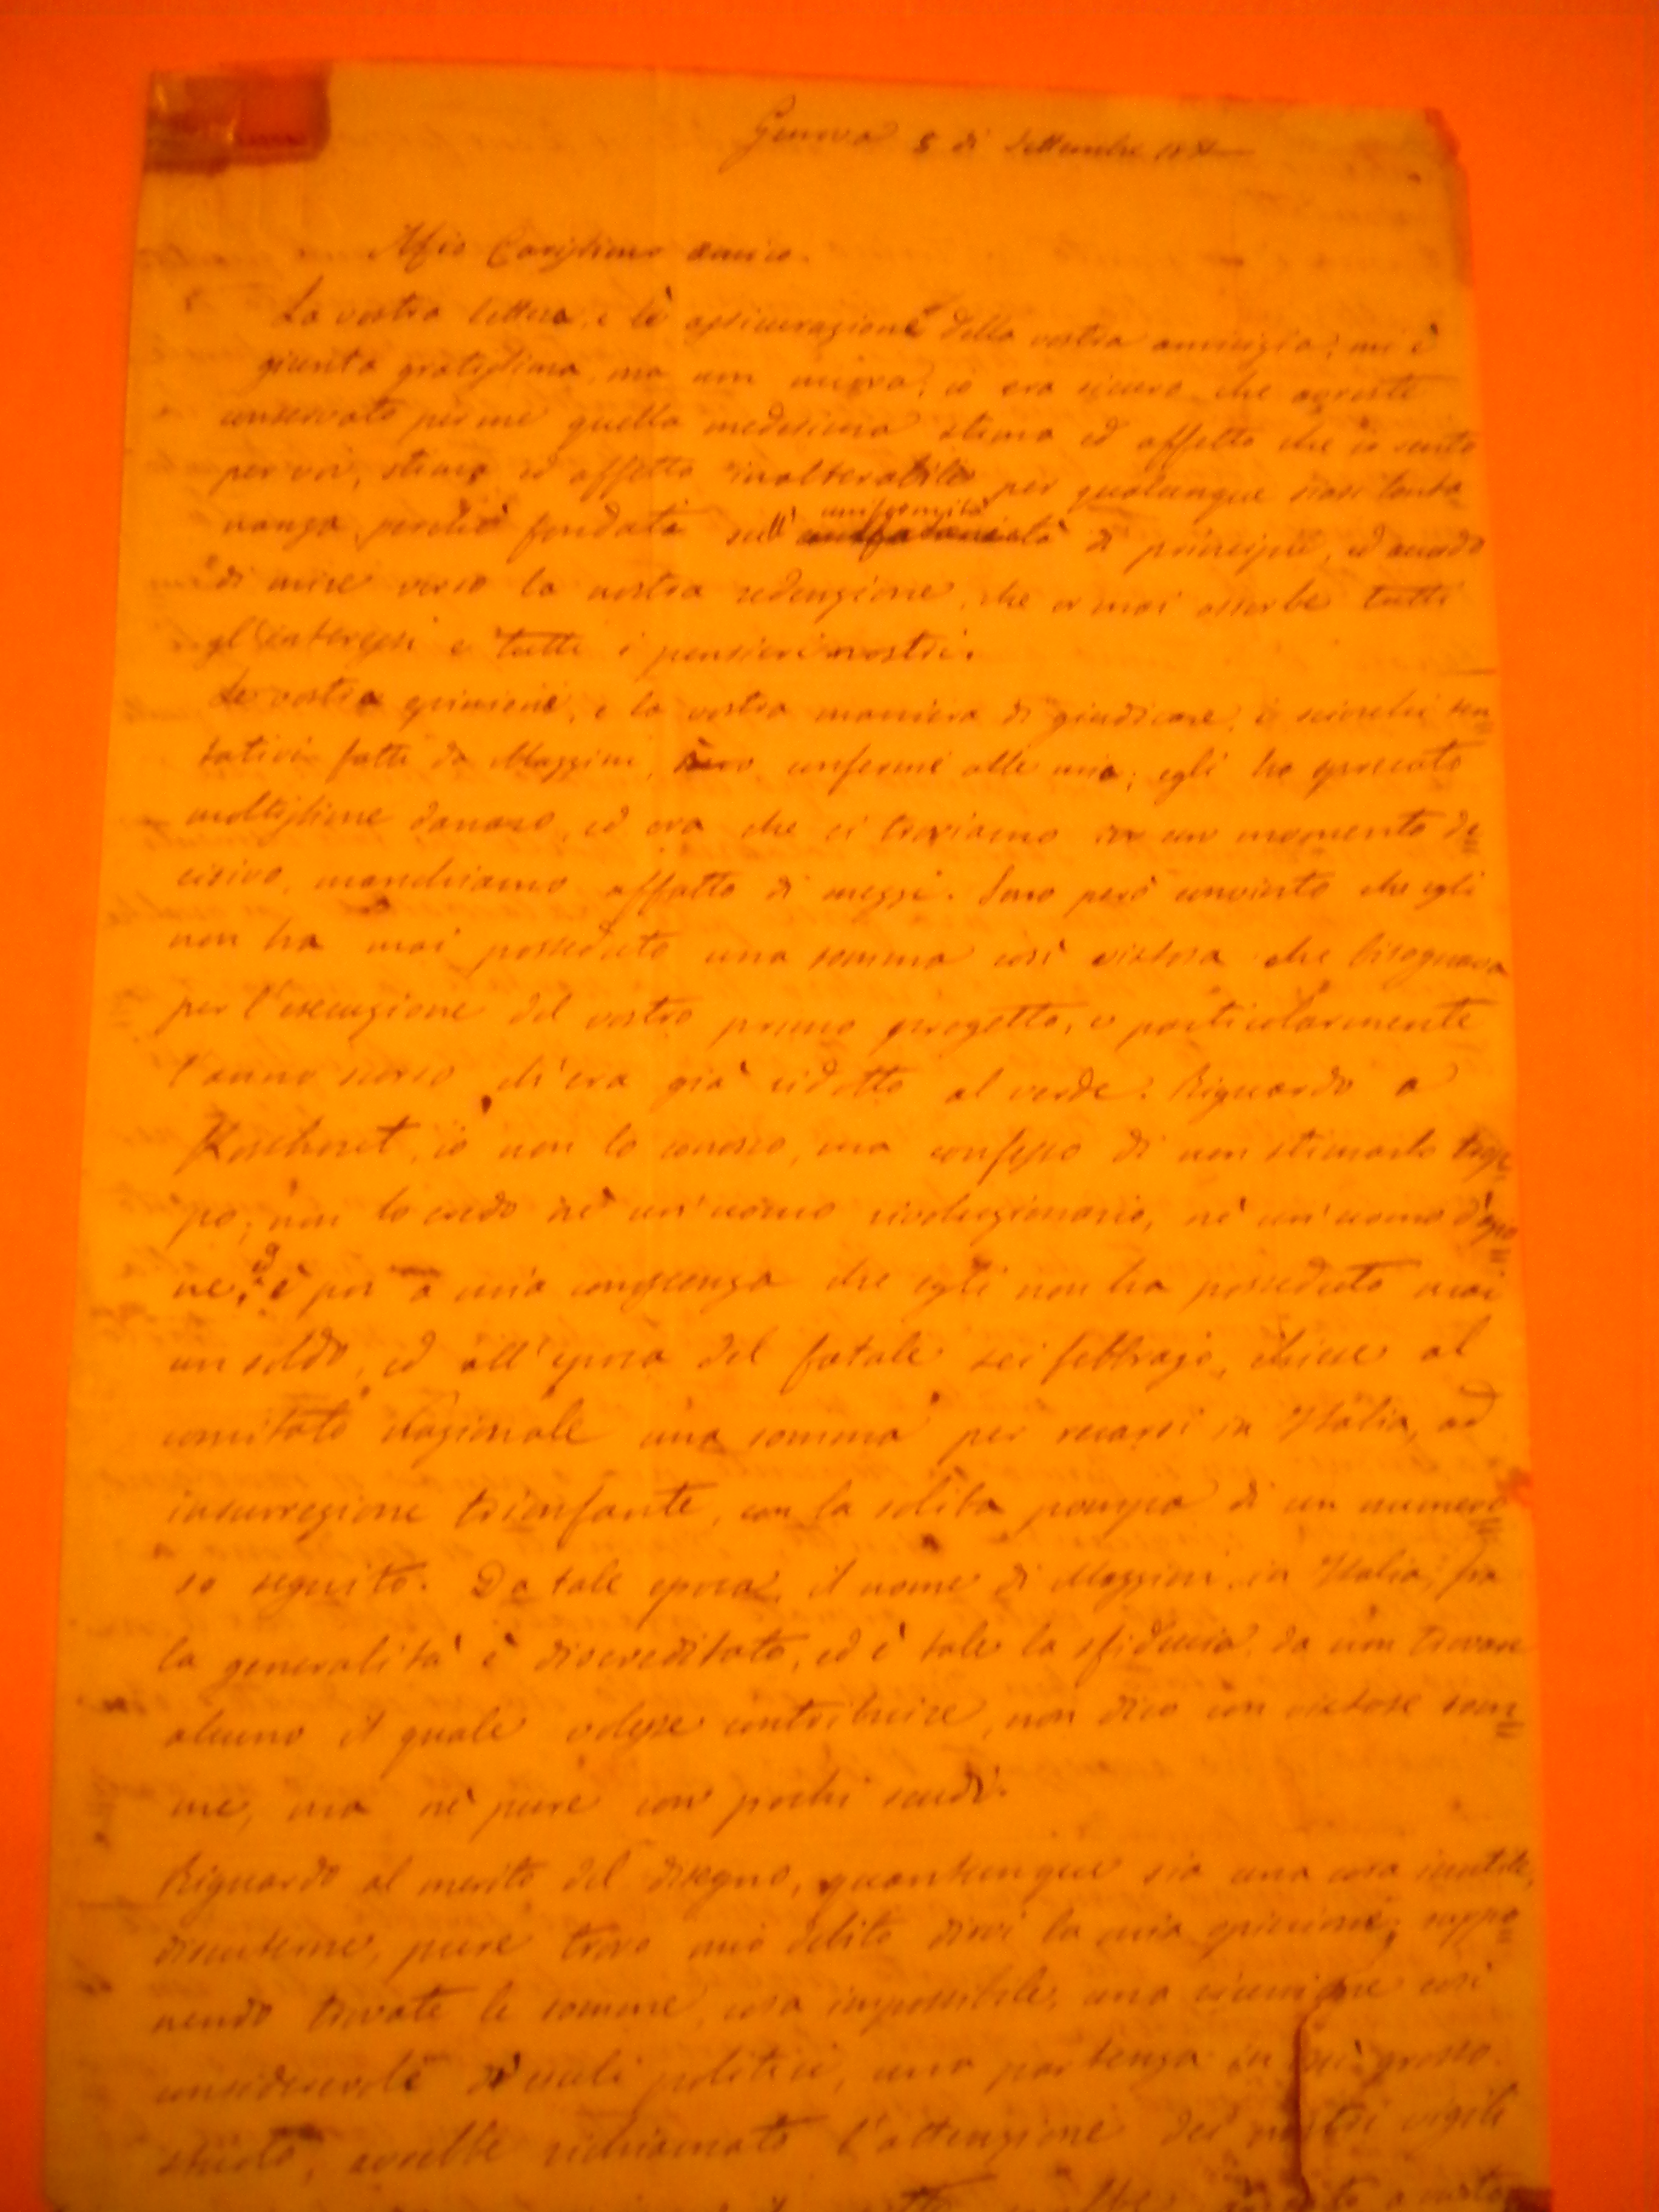 Genova 8 di Settembre 185
Mio Carissimo amico.
La vostra lettera, e le assicurazione della vostra amicizia, mi è
giunta gratissima, ma non nuova; io era sicuro che avreste
conservato per me quella medesima stima ed affetto che io sento
per voi, stima ed affetto inalterabile per qualunque siasi lonta
nanza perchè fondata sull' uniformità di principii, ed accordo
di mire verso la nostra redenzione, che ormai assorbe tutti
gl'interessi e tutti i pensieri nostri.
Le vostre opinione, e la vostra maniera di giudicare, i sciocchi ten
tativi fatti da Mazzini, sono conformi alle mie; egli ha sprecato
moltissimo danaro, ed ora che ci troviamo in un momento de
cisivo, manchiamo affatto di mezzi. Sono però convinto che egli
non ha mai posseduto una somma così vistosa che bisognava
per l'esecuzione del vostro primo progetto, e particolarmente
l'anno scorso ch'era già ridotto al verde. Riguardo a
io non lo conosco, ma confesso di non stimarlo trop
po; non lo credo nè un'uomo rivoluzionario, nè un'uomo d'azio
ne, è poi a mia conoscenza che egli non ha posseduto mai
un soldo, ed all'epoca del fatale sei febbrajo, chiese al
comitato nazionale una somma per recarsi in Italia, ad
insurrezione trionfante, con la solita pompa di un numero
so seguito. Da tale epoca, il nome di Mazzini, in Italia, fra
la generalità è discreditato, ed è tale la sfiducia, da non trovare
alcuno il quale volesse contribuire, non dico con vistose som
me, ma nè pure con pochi scudi.
Riguardo al merito del disegno, quantunque sia una cosa inutile,
discuterne, pure trovo mio debito dirvi la mia opinione; suppo
nendo trovate le somme, cosa impossibile, una riunione così
considerevole d'esuli politici, una partenza in così grosso
stuolo, avrebbe richiamato l'attenzione dei nostri vigili